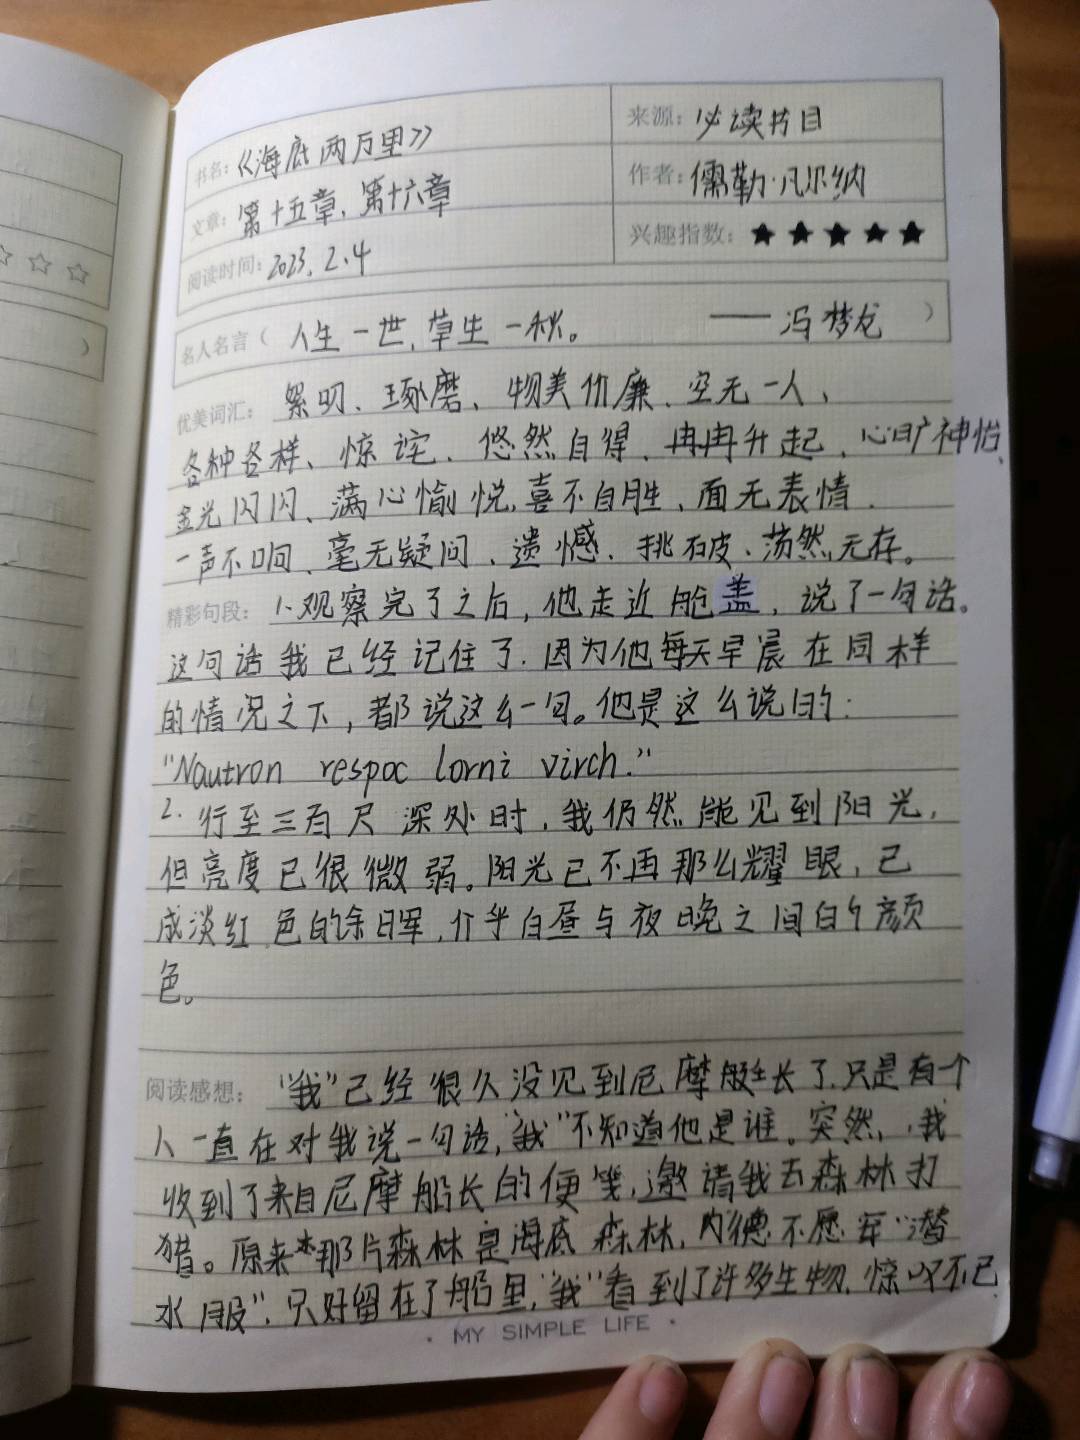 书名：《海底两万里》
来源：必读书目
文章：第十五章、第十六章
作者：儒勒·凡尔纳
阅读时间：2023.2.4
兴趣指数：★★★★★
名人名言（ 人生一世，草生一秋。 ——冯梦龙 ）
优美词汇： 絮叨、琢磨、物美价廉、空无一人、
各种各样、惊诧、悠然自得、冉冉升起、心旷神怡、
金光闪闪、满心愉悦、喜不自胜、面无表情、
一声不响、毫无疑问、遗憾、挑破、荡然无存。
精彩句段： 1.观察完了之后，他走近舱盖，说了一句话。
这句话我已经记住了.因为他每天早晨在同样
的情况之下，都说这么一句。他是这么说的：
“Nautron respoc lorni virch.”
2.行至三百尺深处时，我仍然能见到阳光，
但亮度已很微弱。阳光已不再那么耀眼，已
成淡红色的余晖，介乎白昼与夜晚之间的颜
色。
阅读感想： “我”已经很久没见到尼摩艇长了.只是有一个
人一直在对我说一句话，“我”不知道他是谁。突然，我
收到了来自尼摩船长的便笺，邀请我去森林打
猎。原来那片森林是海底森林，内德不愿穿“潜
水服”，只好留在了船里，“我”看到了许多生物，惊叹不已
· MY SIMPLE LIFE ·